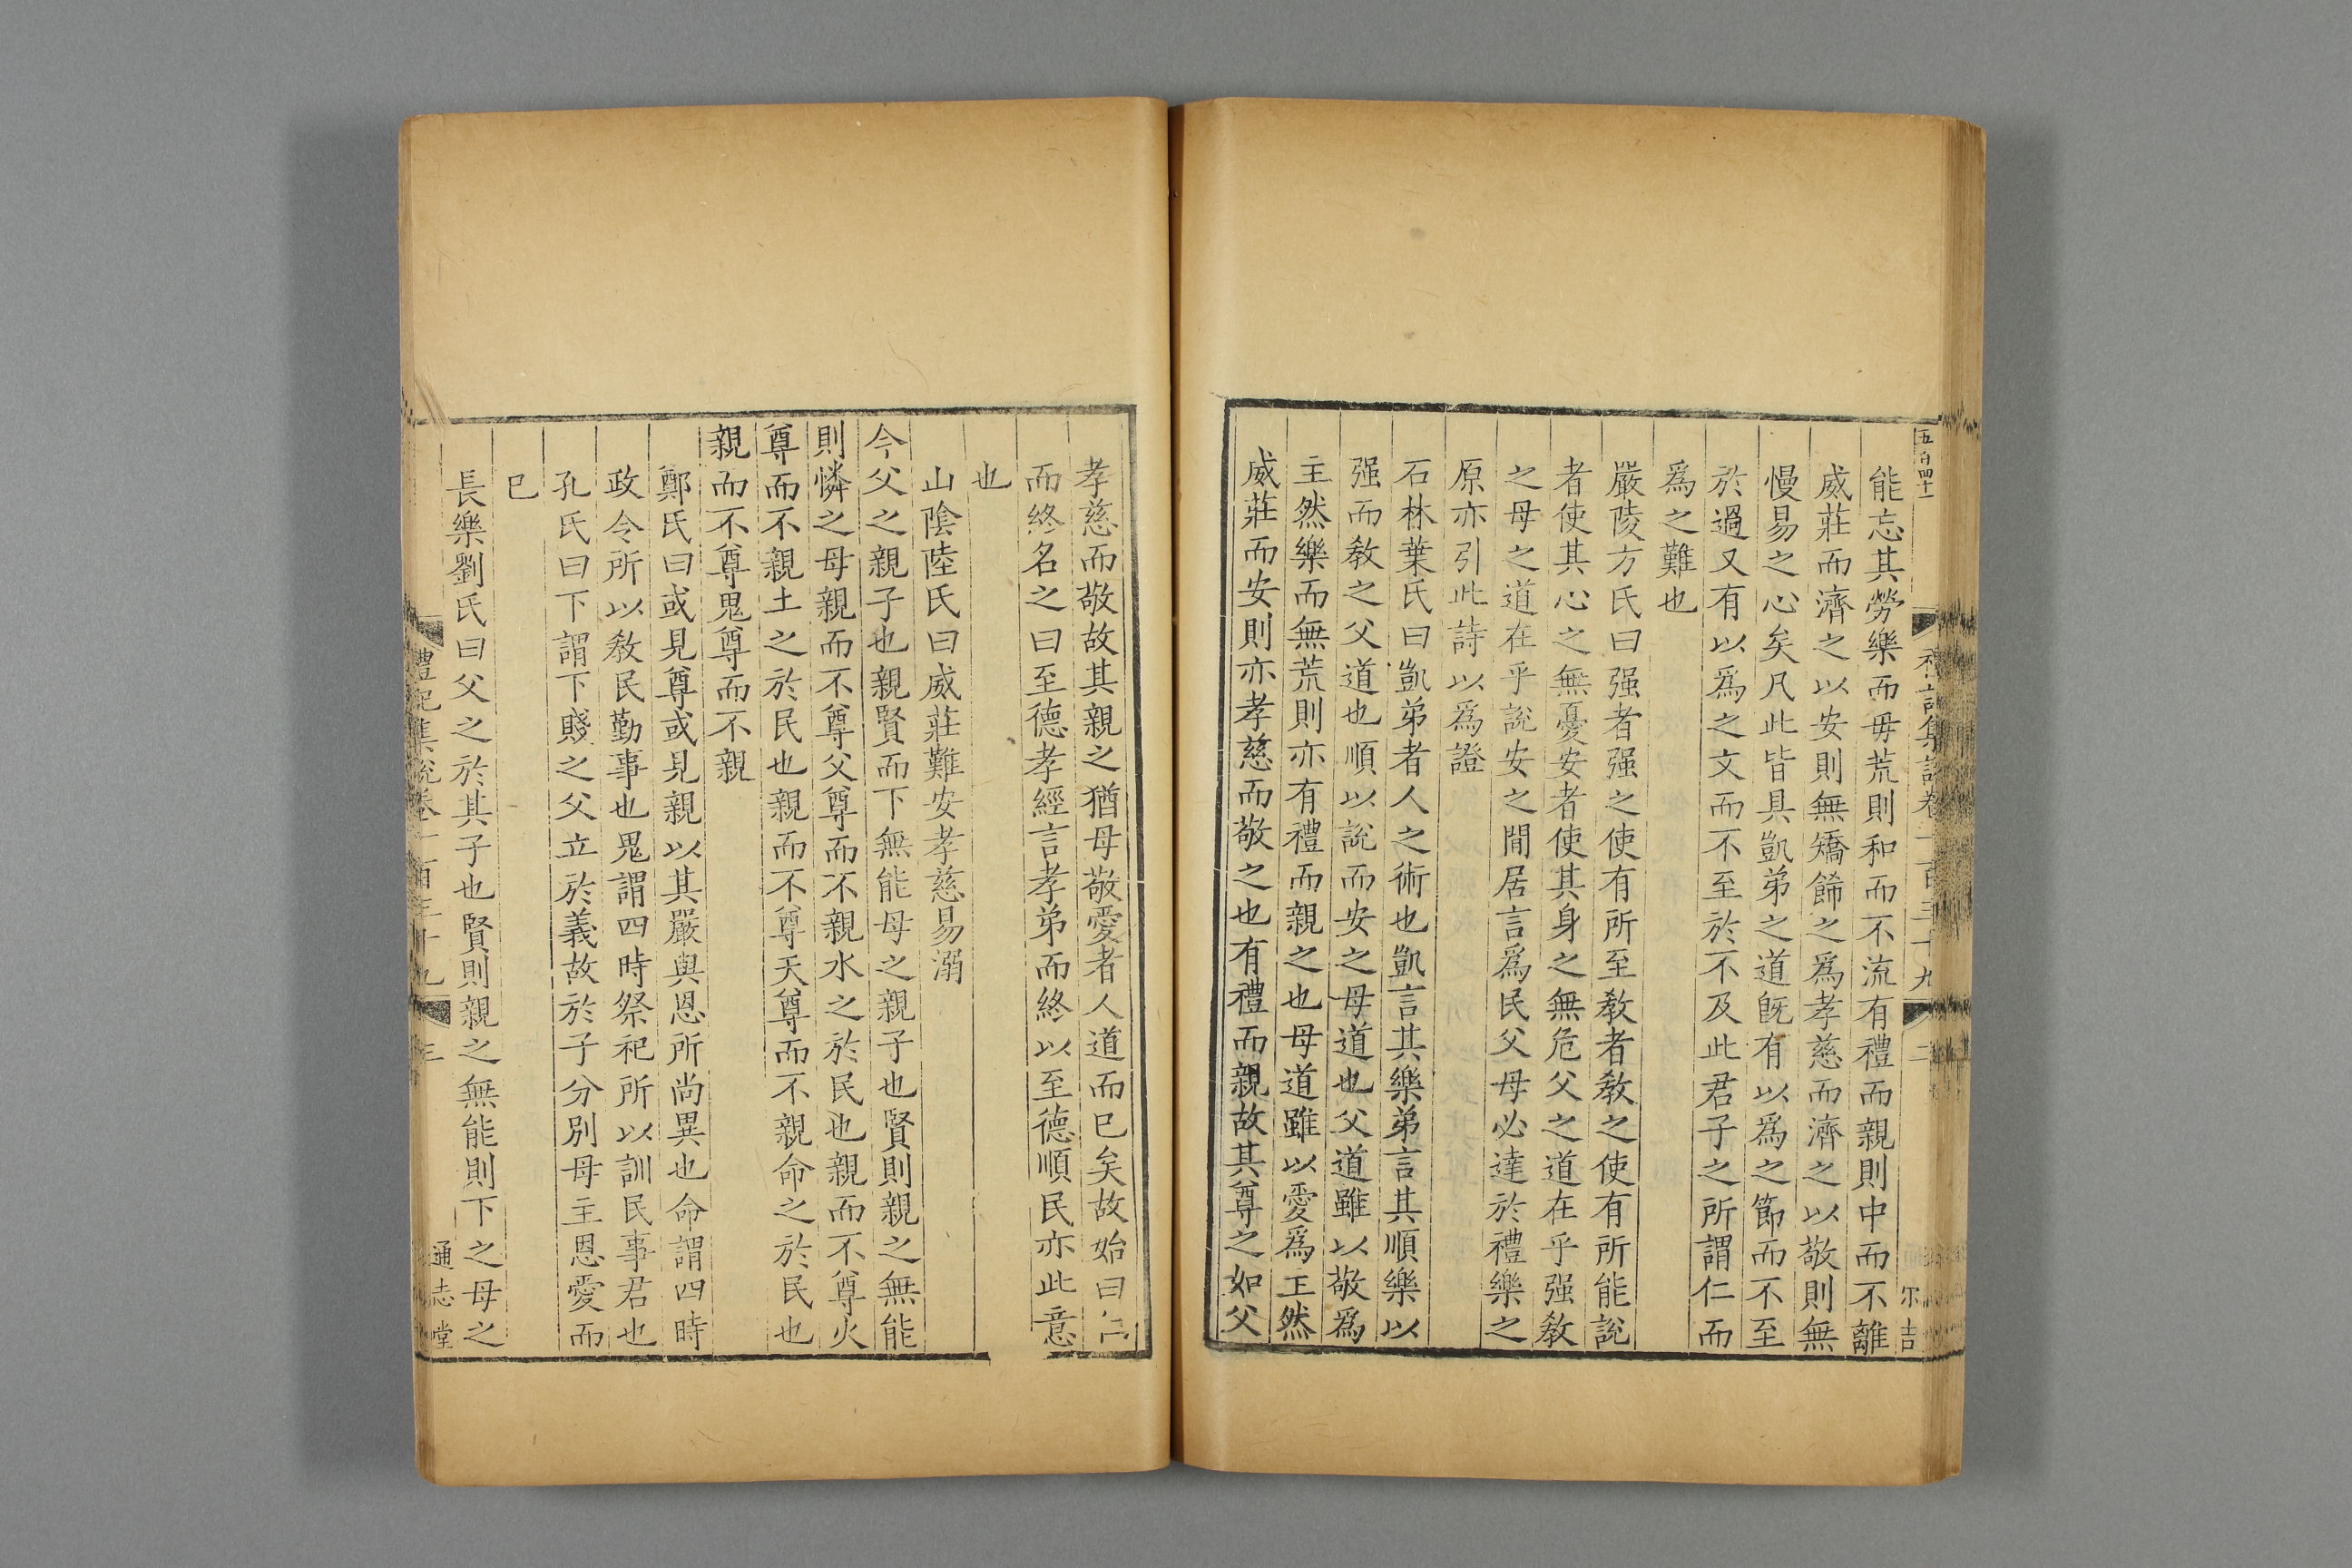 五百四十
能忘其勞樂而毋荒則和而不流有禮而親則中而不離
威莊而濟之以安則無矯飾之爲孝慈而濟之以敬則無
慢易之心矣凡此皆具凱弟之道旣有以爲之節而不至
於過又有以爲之文而不至於不及此君子之所謂仁而
爲之難也
嚴陵方氏曰强者强之使有所至敎者敎之使有所能說
者使其心之無憂安者使其身之無危父之道在乎强敎
之母之道在乎說安之閒居言爲民父母必達於禮樂之
原亦引此詩以爲證
石林葉氏曰凱弟者人之術也凱言其樂弟言其順樂以
强而敎之父道也順以說而安之母道也父道雖以敬爲
主然樂而無荒則亦有禮而親之也母道雖以愛爲主然
威莊而安則亦孝慈而敬之也有禮而親故其尊之如父
孝慈而敬故其親之猶母敬愛者人道而已矣故始曰
而終名之曰至德孝經言孝弟而終以至德順民亦此意
也
山陰陸氏曰威莊難安孝慈易溺
今父之親子也親賢而下無能母之親子也賢則親之無能
則憐之母親而不尊父尊而不親水之於民也親而不尊火
尊而不親土之於民也親而不尊天尊而不親命之於民也
親而不尊鬼尊而不親
鄭氏曰或見尊或見親以其嚴與恩所尚異也命謂四時
政令所以敎民勤事也鬼謂四時祭祀所以訓民事君也
孔氏曰下謂下賤之父立於義故於子分別母主恩愛而
已
長樂劉氏曰父之於其子也賢則親之無能則下之母之
禮記集說卷一百三十九 三 通志堂